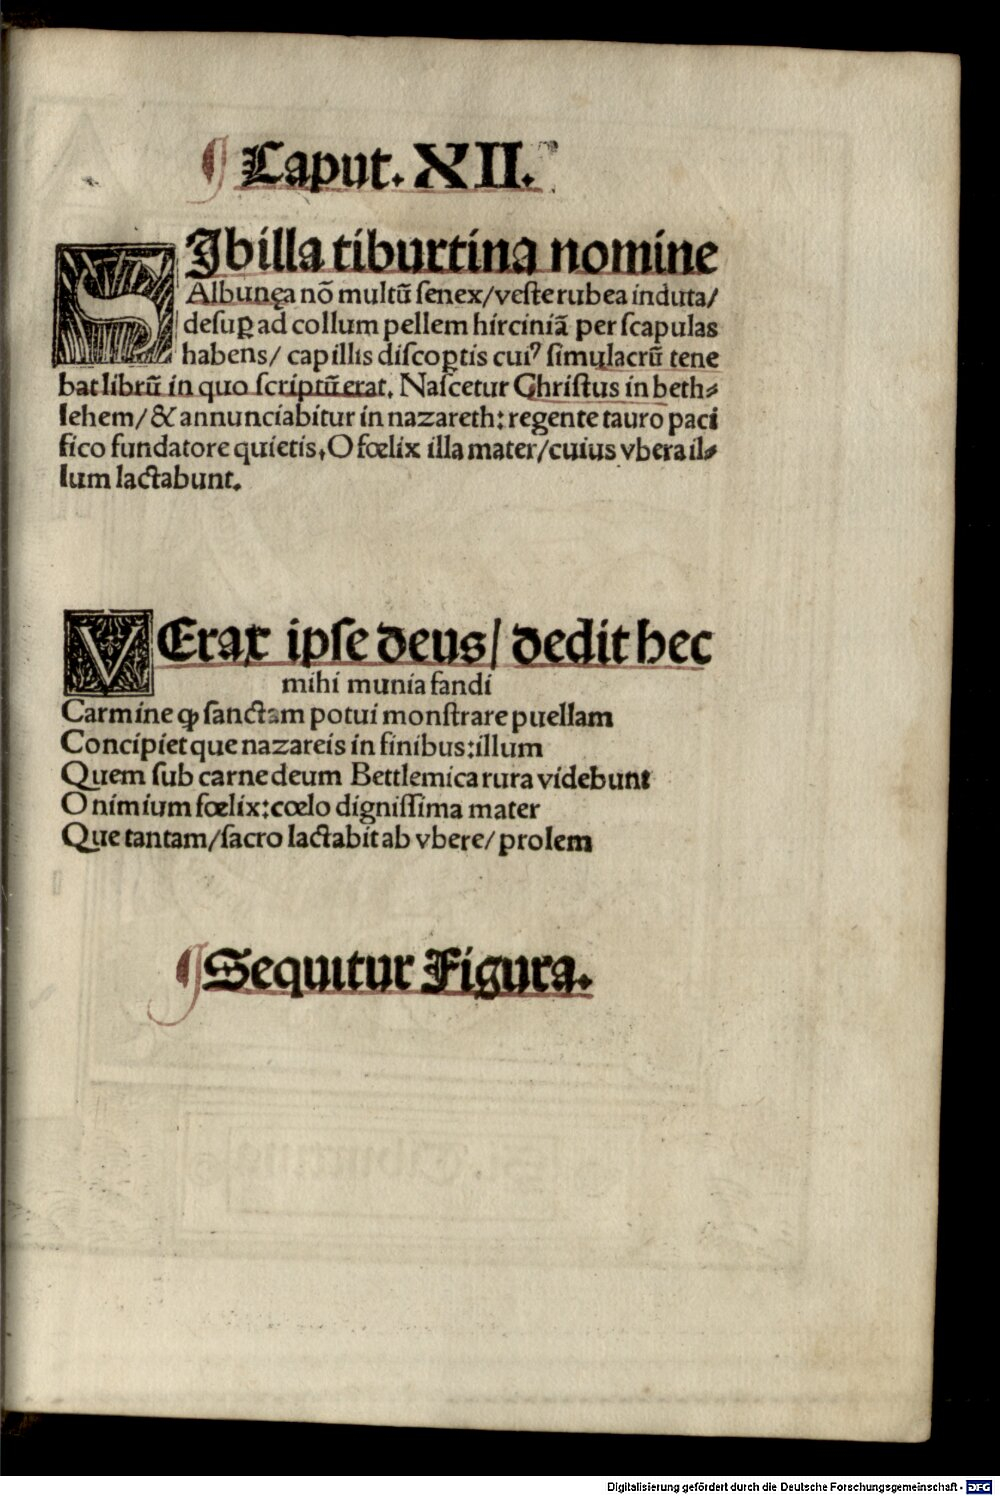 ¶ Caput. XII.
SIbilla tiburtina nomine
Albunęa nō multū ſenex/veſte rubea induta/
deſuꝑ ad collum pellem hirciniā per ſcapulas
habens/ capillis diſcoꝑtis cuiꝰ ſimulacrū tene
bat librū in quo ſcriptū erat. Naſcetur Chriſtus in beth⸗
lehem/ & annunciabitur in nazareth: regente tauro paci
fico fundatore quietis. O fœlix illa mater/cuius vbera il⸗
lum lactabunt.
VErax ipſe deus/ dedit hec
mihi munia fandi
Carmine ꝙ ſanctam potui monſtrare puellam
Concipiet que nazareis in finibus: illum
Quem ſub carne deum Bettlemica rura videbunt
O nimium fœlix: cœlo digniſſima mater
Que tantam/ſacro lactabit ab vbere/ prolem
¶ Sequitur Figura.
Digitalisierung gefördert durch die Deutsche Forschungsgemeinschaft - DFG